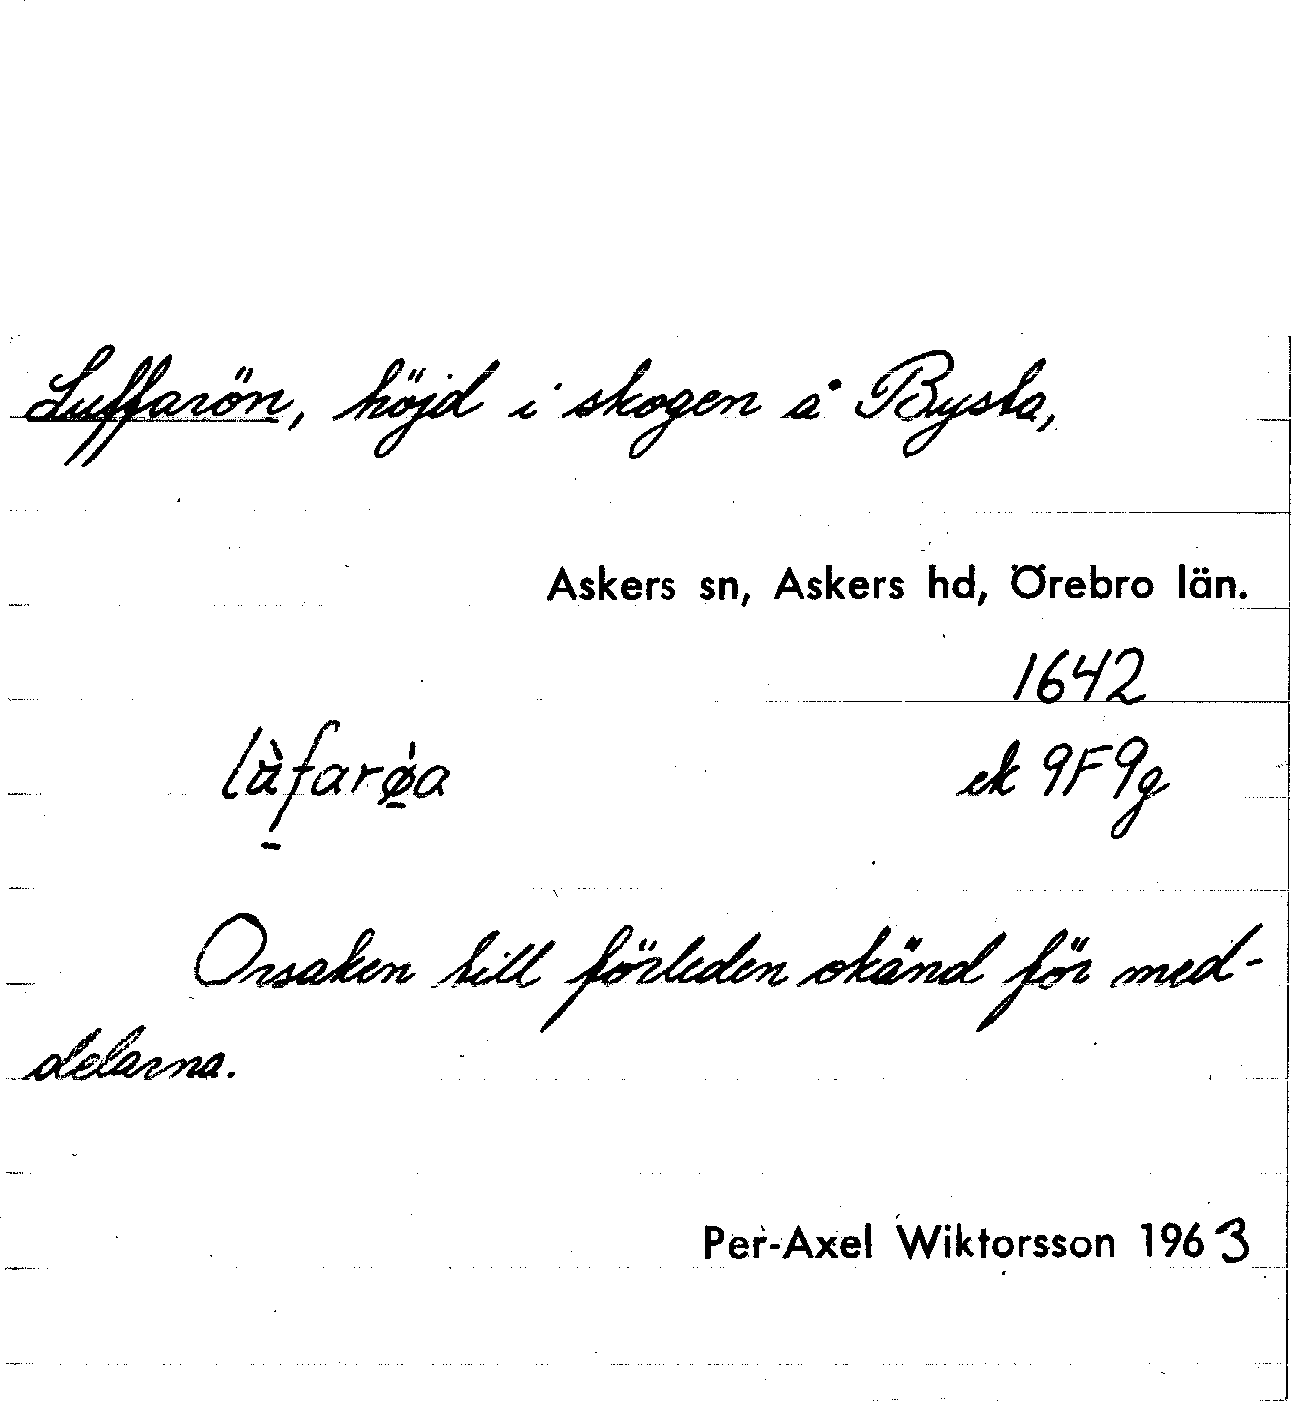 Luffarön, höjd i skogen å Bysta,
Askers sn, Askers hd, Örebro län.
1642
lùfarø̀a ek 9F9g
Orsaken till förleden okänd för med-
delarna.
Per-Axel Wiktorsson 1963